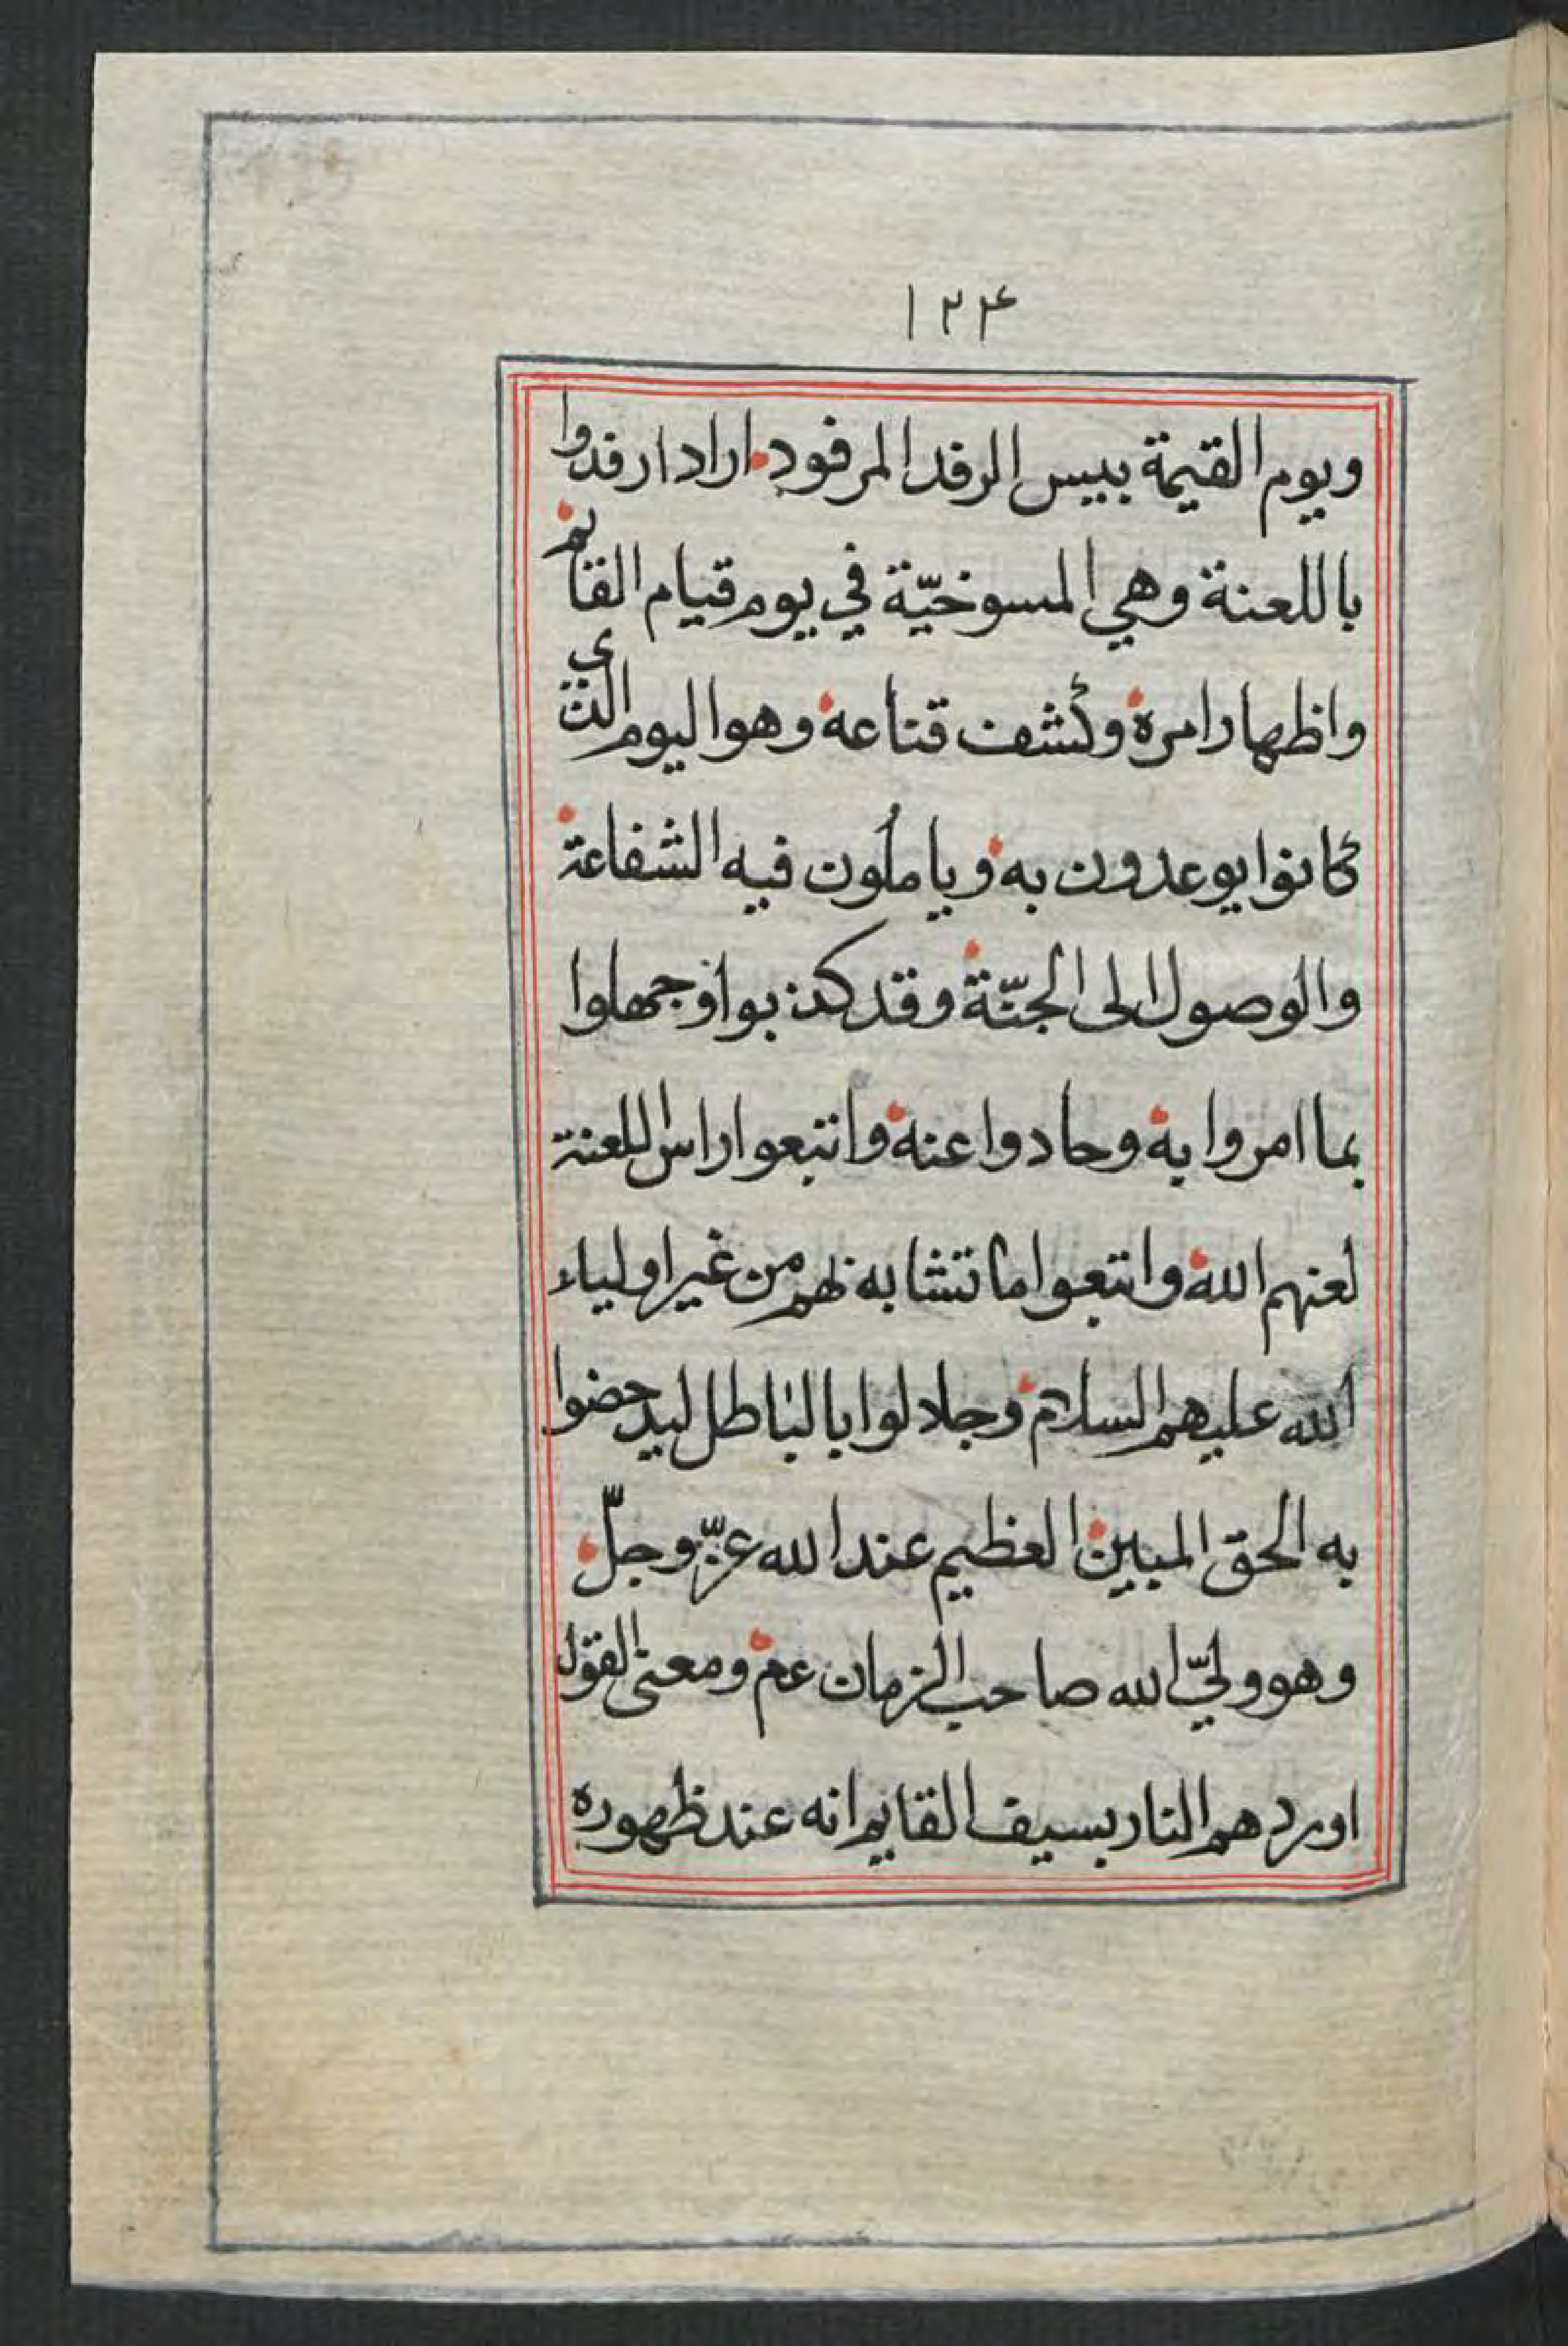 ۱۲۴
ويوم القيمة بيس الرفد المرفود اراد ارفدوا
باللعنة وهي المسوخيّة في يوم قيام القايم
واظهار امره وكشف قناعه وهو اليوم الذي
كانوا يوعدون به ويامُلون فيه الشفاعة
والوصول الى الجنّة وقد كذبوا وجهلوا
بما امروا به وحادوا عنه واتبعوا راس اللعنة
لعنهم الله واتبعوا ما تشابه لهم من غير اولياء
الله عليهم السلام وجادلوا بالباطل ليدحضوا
به الحق المبين العظيم عند الله عزّ وجلّ
وهو وليّ الله صاحب الزمان عم ومعنى القول
اوردهم النار بسيف القايم انه عند ظهوره